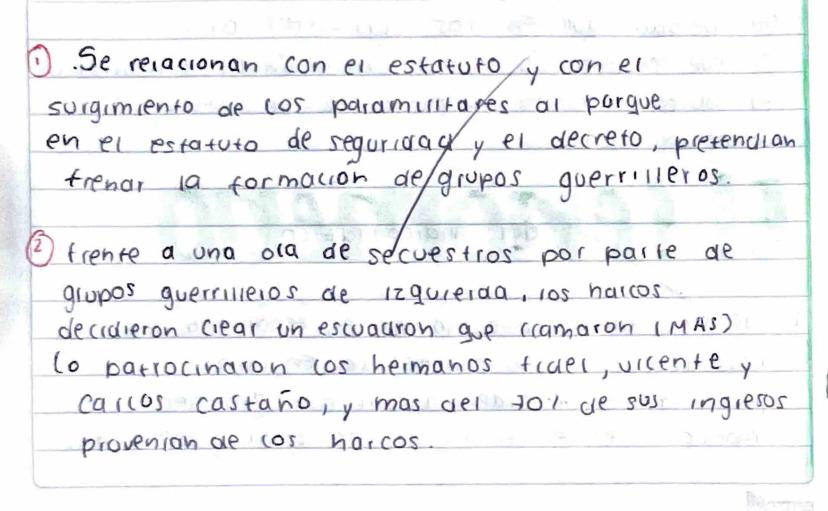 1 .Se relacionan con el estatuto y con el
surgimiento de los paramilitares al porque
en el estatuto de seguridad y el decreto, pretendian
frenar la formacion de grupos guerrilleros.
2 frente a una ola de secuestros por parte de
grupos guerrilleros de izquierda, los narcos
decidieron crear un escuadron que llamaron (MAS)
lo patrocinaron los hermanos fidel, vicente y
carlos castaño, y mas del 70% de sus ingresos
provenian de los narcos.